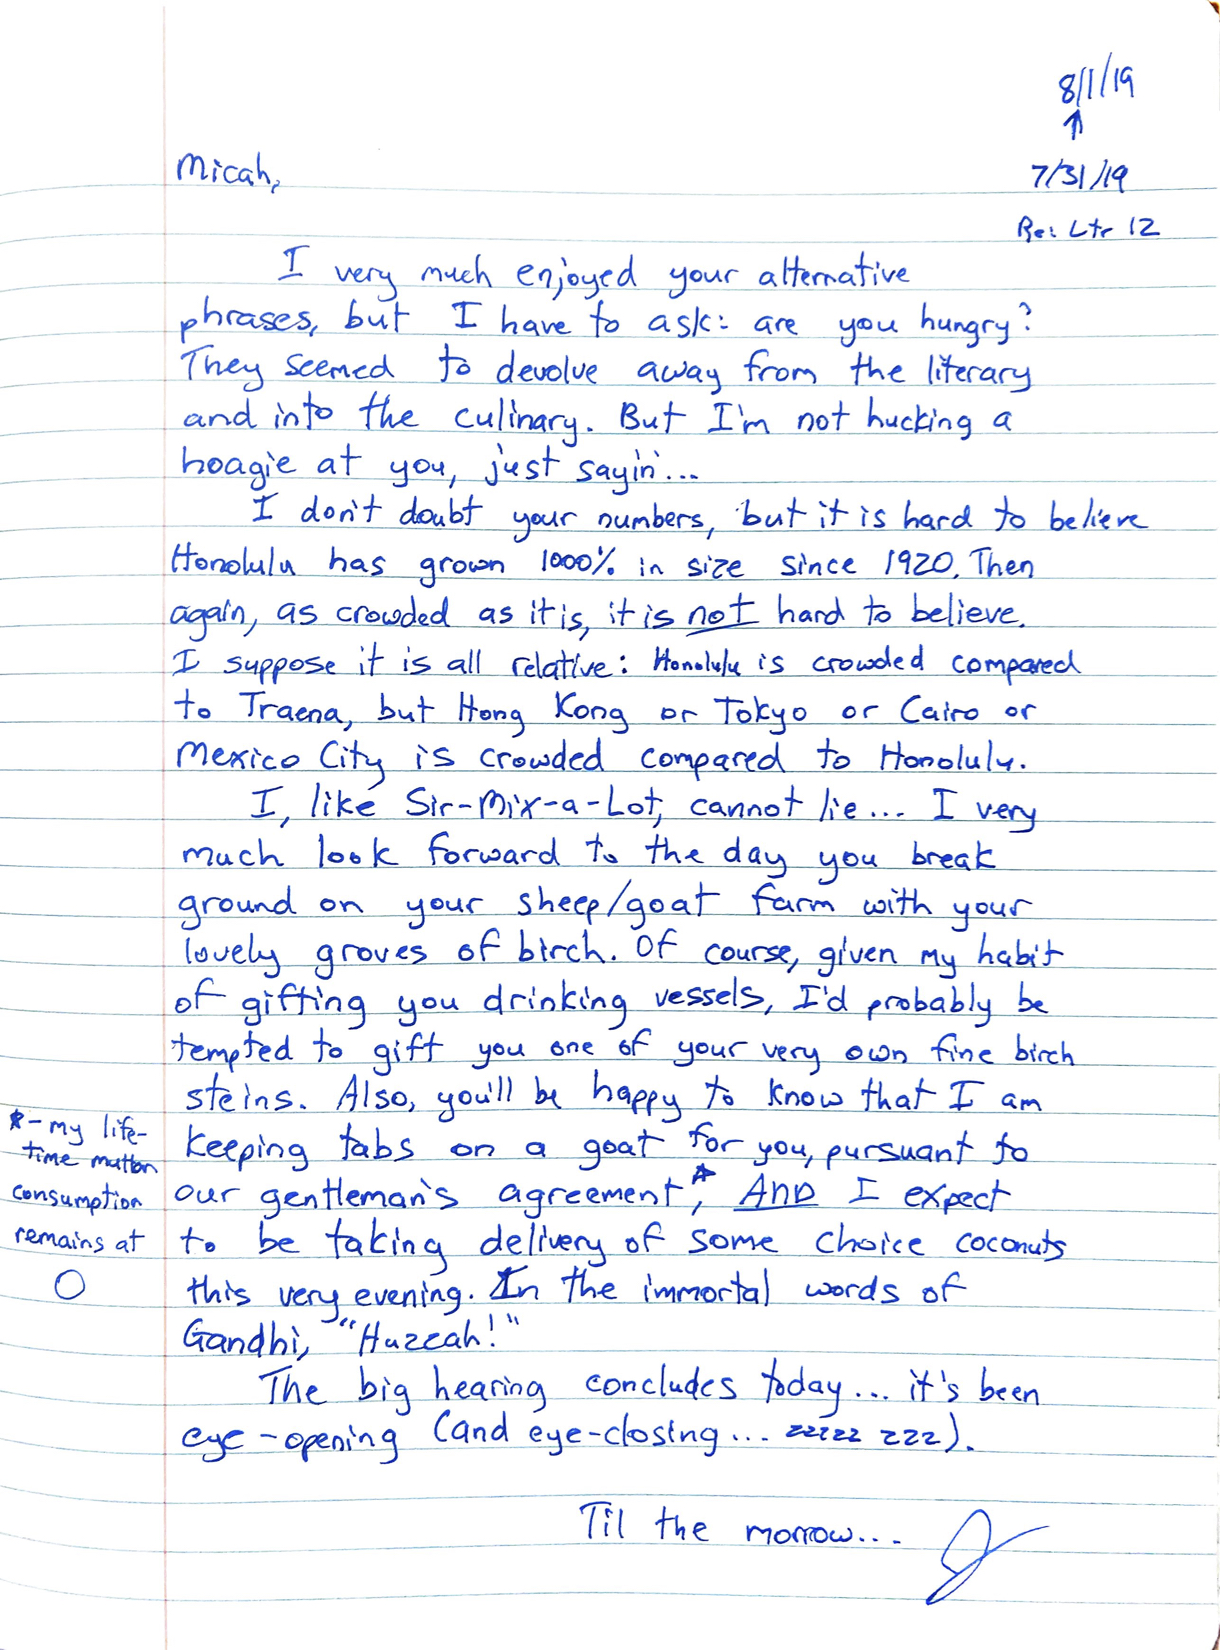 8/1/19
↑
Micah,
7/31/19
Re: Ltr 12
I very much enjoyed your alternative
phrases, but I have to ask: are you hungry?
They seemed to devolve away from the literary
and into the culinary. But I'm not hucking a
hoagie at you, just sayin'...
I don't doubt your numbers, but it is hard to believe
Honolulu has grown 1000% in size since 1920. Then
again, as crowded as it is, it is not hard to believe.
I suppose it is all relative: Honolulu is crowded compared
to Traena, but Hong Kong or Tokyo or Cairo or
Mexico City is crowded compared to Honolulu.
I, like Sir-Mix-a-Lot, cannot lie... I very
much look forward to the day you break
ground on your sheep/goat farm with your
lovely groves of birch. Of course, given my habit
of gifting you drinking vessels, I'd probably be
tempted to gift you one of your very own fine birch
steins. Also, you'll be happy to know that I am
keeping tabs on a goat for you, pursuant to
our gentleman's agreement,* AND I expect
to be taking delivery of some choice coconuts
this very evening. In the immortal words of
Gandhi, "Huzzah!"
The big hearing concludes today... it's been
eye-opening (and eye-closing... zzzzz zzz).
Til the morrow...
*- my life-
time mutton
consumption
remains at
0